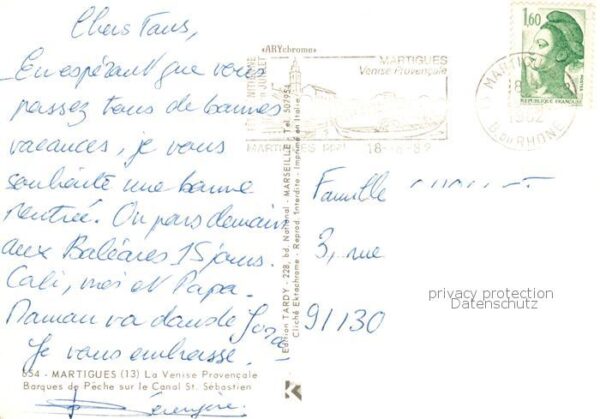 Chers Tous,
En espérant que vous
passez tous de bonnes
vacances, je vous
souhaite une bonne
rentrée. On pars demain
aux Baléares 15 jours.
Cali, moi et Papa.
Maman va dans le
Je vous embrasse.
Bérengère.
554 - MARTIGUES (13) La Venise Provençale
Barques de Pêche sur le Canal St. Sébastien
«ARYchrome»
Edition TARDY - 228, bd. National - MARSEILLE - Tel. 507954
Cliché Ektachrome - Reprod. Interdite - Imprimé en Italie
JUILLET
MARTIGUES
Venise Provençale
MARTIGUES
18
1,60
REPUBLIQUE FRANCAISE
B. DU RHONE
Famille
3, rue
91130
privacy protection
Datenschutz